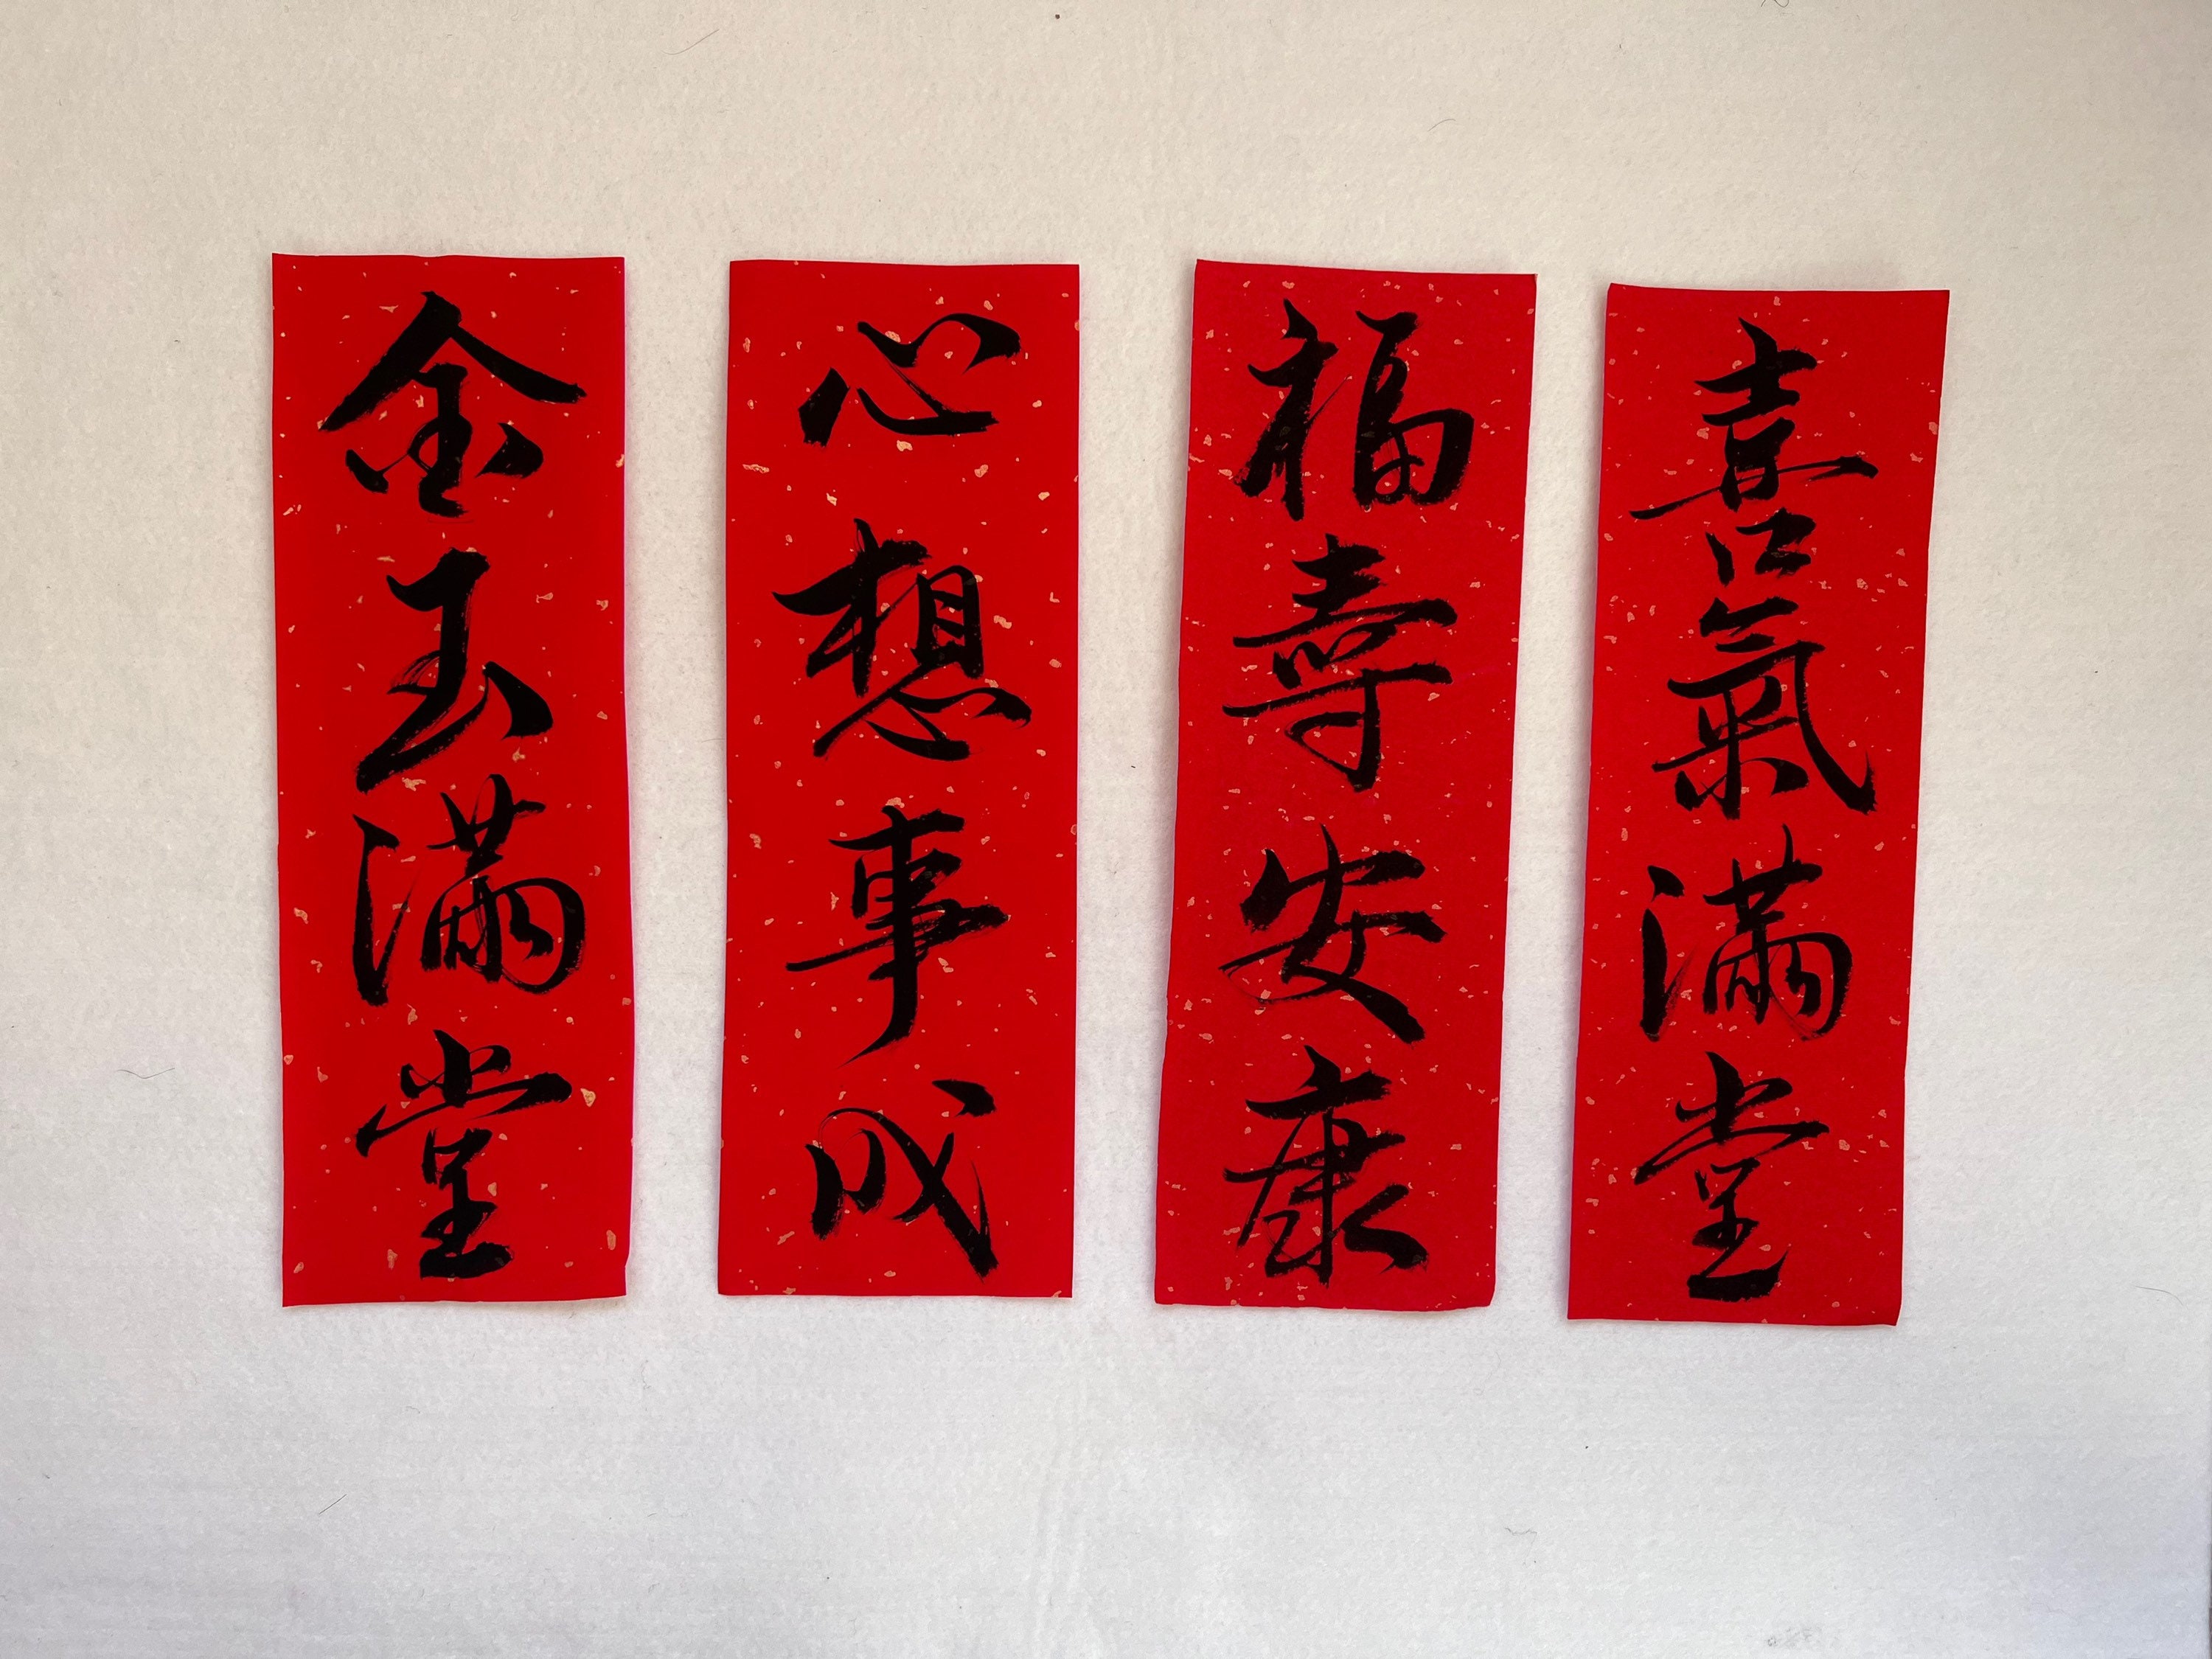 喜氣滿堂
福壽安康
心想事成
金玉滿堂